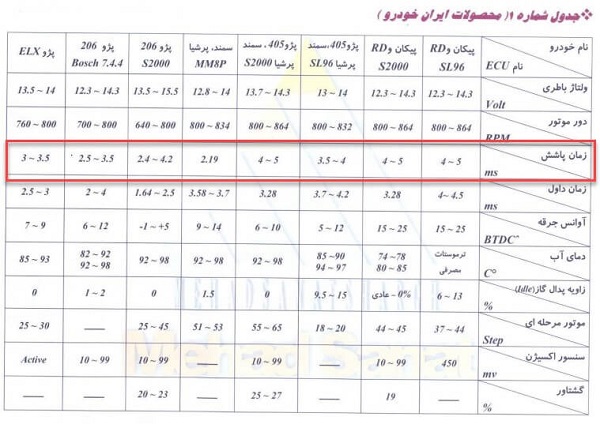 جدول شماره ۱( محصولات ایران خودرو )
نام خودرو
نام ECU
پیکان و RD SL96
پیکان و RD S2000
پژو405،سمند پرشیا SL96
پژو405، سمند پرشیا S2000
سمند، پرشیا MM8P
پژو 206 S2000
پژو 206 Bosch 7.4.4
پژو ELX
ولتاژ باطری Volt 12.3 ~ 14.3 12.3 ~ 14.3 13 ~ 14 13.7 ~ 14.3 12.8 ~ 14 13.5 ~ 15.5 12.3 ~ 14.3 13.5 ~ 14
دور موتور RPM 800 ~ 864 800 ~ 864 800 ~ 832 800 ~ 864 800 ~ 834 640 ~ 800 700 ~ 800 760 ~ 800
زمان پاشش ms 4 ~ 5 4 ~ 5 3.5 ~ 4 4 ~ 5 2.19 2.4 ~ 4.2 2.5 ~ 3.5 3 ~ 3.5
زمان داول ms 4 ~ 4.5 3.28 3.7 ~ 4.2 3.28 3.58 ~ 3.7 1.64 ~ 2.5 2 ~ 4 2.5 ~ 3
آوانس جرقه BTDC° 15 ~ 25 15 ~ 25 5 ~ 12 6 ~ 10 9 ~ 14 -5 ~ +1 6 ~ 12 7 ~ 9
دمای آب C° ترموستات مصرفی 74 ~ 78 80 ~ 85 85 ~ 90 94 ~ 97 92 ~ 98 92 ~ 98 92 ~ 98 82 ~ 92 92 ~ 98 85 ~ 93
زاویه پدال گاز(Idle) % 6 ~ 13 0% ~ عادی 9.5 ~ 15 0 1.5 0 1 ~ 2 0
موتور مرحله ای Step 37 ~ 44 44 ~ 45 18 ~ 20 55 ~ 65 51 ~ 53 25 ~ 45 —— 25 ~ 30
سنسور اکسیژن mv 450 10 ~ 99 —— 10 ~ 99 —— 10 ~ 99 10 ~ 99 Active
گشتاور % 19 25 ~ 27 20 ~ 23